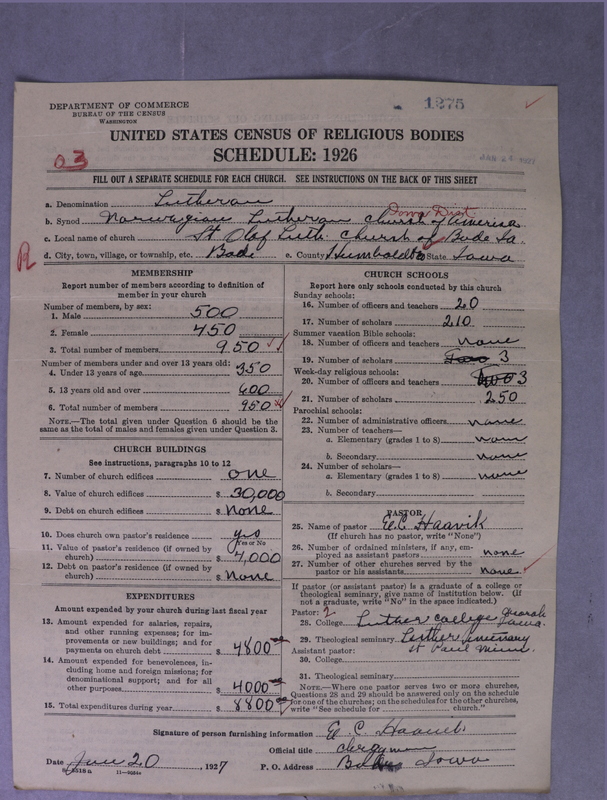 DEPARTMENT OF COMMERCE
BUREAU OF THE CENSUS
WASHINGTON
1275
UNITED STATES CENSUS OF RELIGIOUS BODIES
SCHEDULE: 1926
03
FILL OUT A SEPARATE SCHEDULE FOR EACH CHURCH. SEE INSTRUCTIONS ON THE BACK OF THIS SHEET
a. Denomination Lutheran
Iowa Dist
b. Synod Norwegian Lutheran Church of America
c. Local name of church St Olaf Luth. Church of Bode Ia.
R
d. City, town, village, or township, etc. Bode e. County Humboldt State Iowa
MEMBERSHIP
Report number of members according to definition of
member in your church
Number of members, by sex:
1. Male 500
2. Female 450
3. Total number of members 950
Number of members under and over 13 years old:
4. Under 13 years of age 350
5. 13 years old and over 600
6. Total number of members 950
NOTE.—The total given under Question 6 should be the
same as the total of males and females given under Question 3.
CHURCH BUILDINGS
See instructions, paragraphs 10 to 12
7. Number of church edifices one
8. Value of church edifices $ 30,000
9. Debt on church edifices $ None
10. Does church own pastor's residence? yes
Yes or No
11. Value of pastor's residence (if owned by
church) $ 4,000
12. Debt on pastor's residence (if owned by
church) $ None
EXPENDITURES
Amount expended by your church during last fiscal year
13. Amount expended for salaries, repairs,
and other running expenses; for im-
provements on new buildings; and for
payments on church debt $ 4800
14. Amount expended for benevolences, in-
cluding home and foreign missions; for
denominational support; and for all
other purposes $ 4000
15. Total expenditures during year $ 8800
CHURCH SCHOOLS
Report here only schools conducted by this church
Sunday schools:
16. Number of officers and teachers 20
17. Number of scholars 210
Summer vacation Bible schools:
18. Number of officers and teachers none
19. Number of scholars 3
Week-day religious schools:
20. Number of officers and teachers two 3
21. Number of scholars 250
Parochial schools:
22. Number of administrative officers none
23. Number of teachers—
a. Elementary (grades 1 to 8) none
b. Secondary none
24. Number of scholars—
a. Elementary (grades 1 to 8) none
b. Secondary
PASTOR
25. Name of pastor E.C. Haavik
(If church has no pastor, write "None")
26. Number of ordained ministers, if any, em-
ployed as assistant pastors none
27. Number of other churches served by the
pastor or his assistants none
If pastor (or assistant pastor) is a graduate of a college or
theological seminary, give name of institution below. (If
not a graduate, write "No" in the space indicated.)
Pastor: 2
28. College Luther College Decorah Iowa
29. Theological seminary Luther Seminary
Assistant pastor: St Paul Minn.
30. College
31. Theological seminary
NOTE.—Where one pastor serves two or more churches,
Questions 28 and 29 should be answered only on the schedule
for one of the churches; on the schedules for the other churches,
write "See schedule for church."
Signature of person furnishing information E. C. Haavik
Official title clergyman
Date Jan 20, 1927 P. O. Address Bode Iowa
11—9684